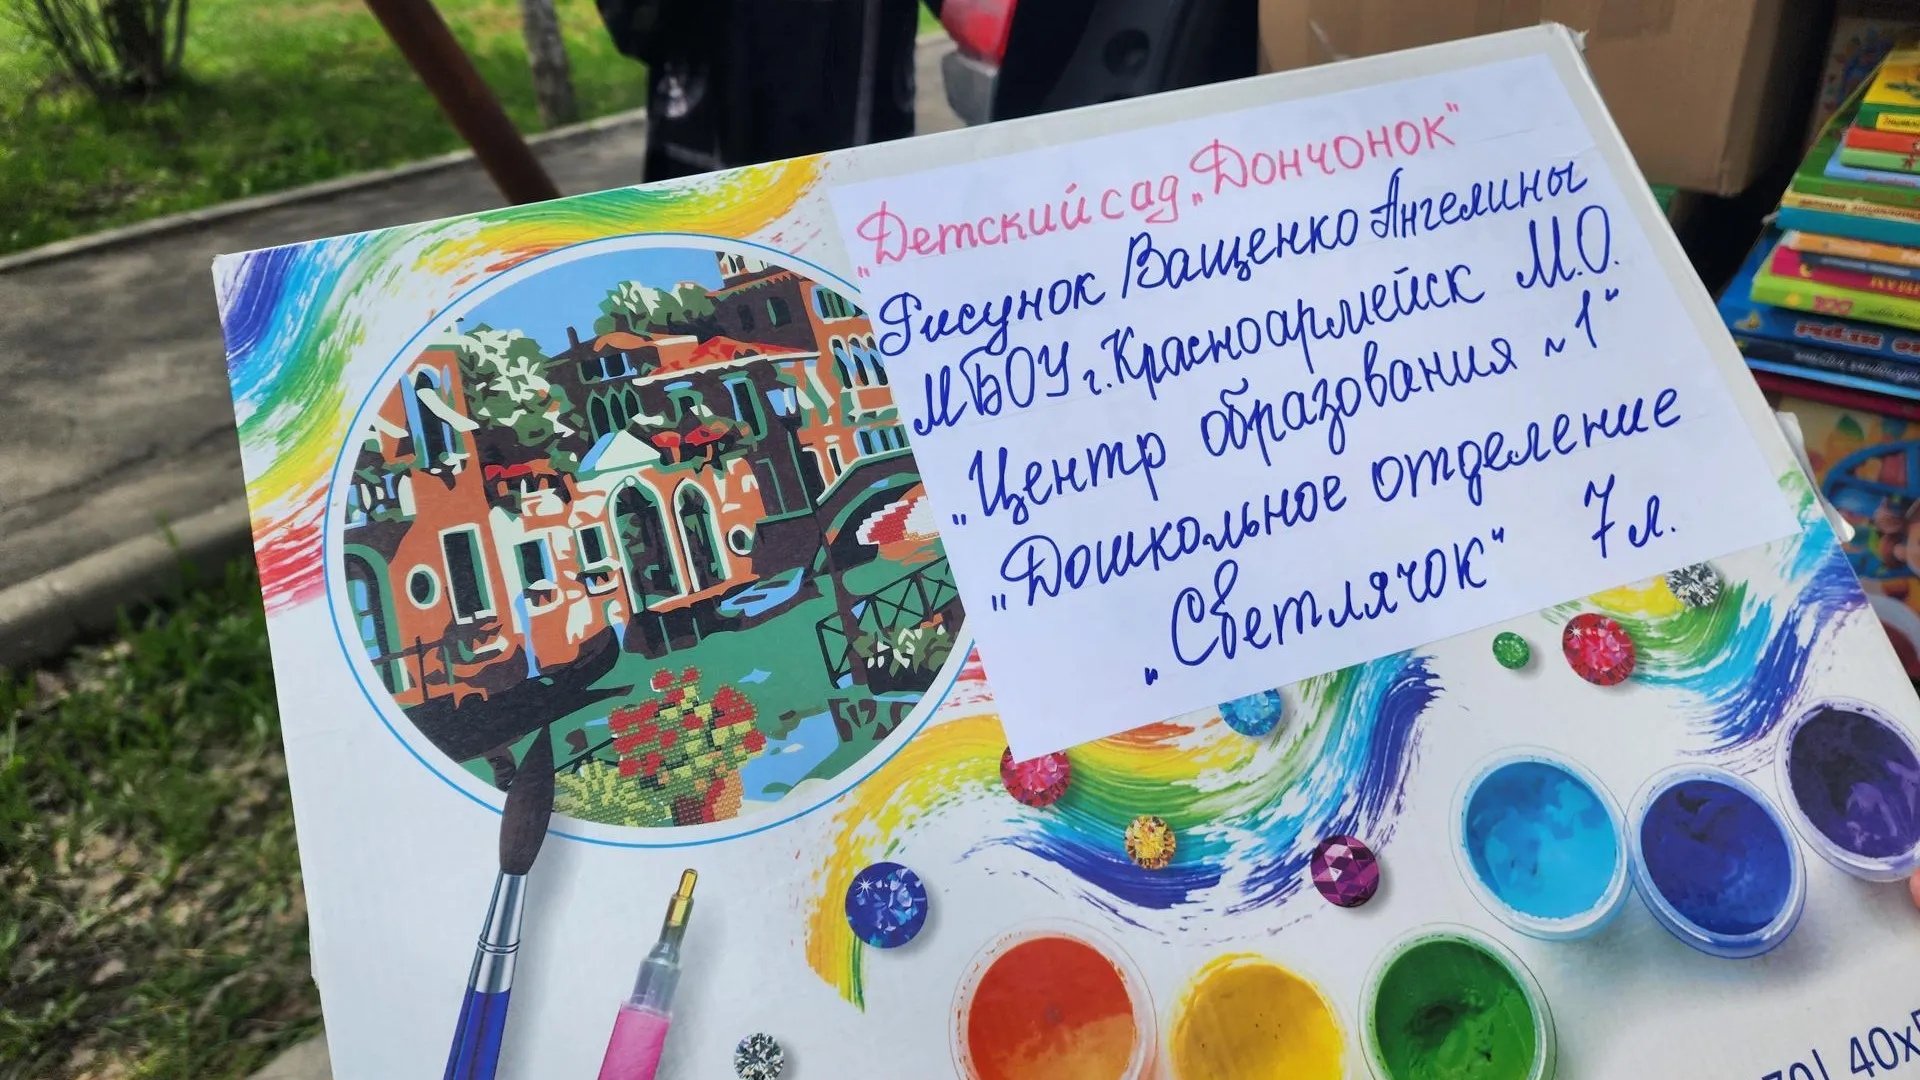 „Детский сад „Дончонок"
Рисунок Ващенко Ангелины
МБОУ г. Красноармейск М.О.
„Центр образования №1"
„Дошкольное отделение
„Светлячок" 7 л.
40х5